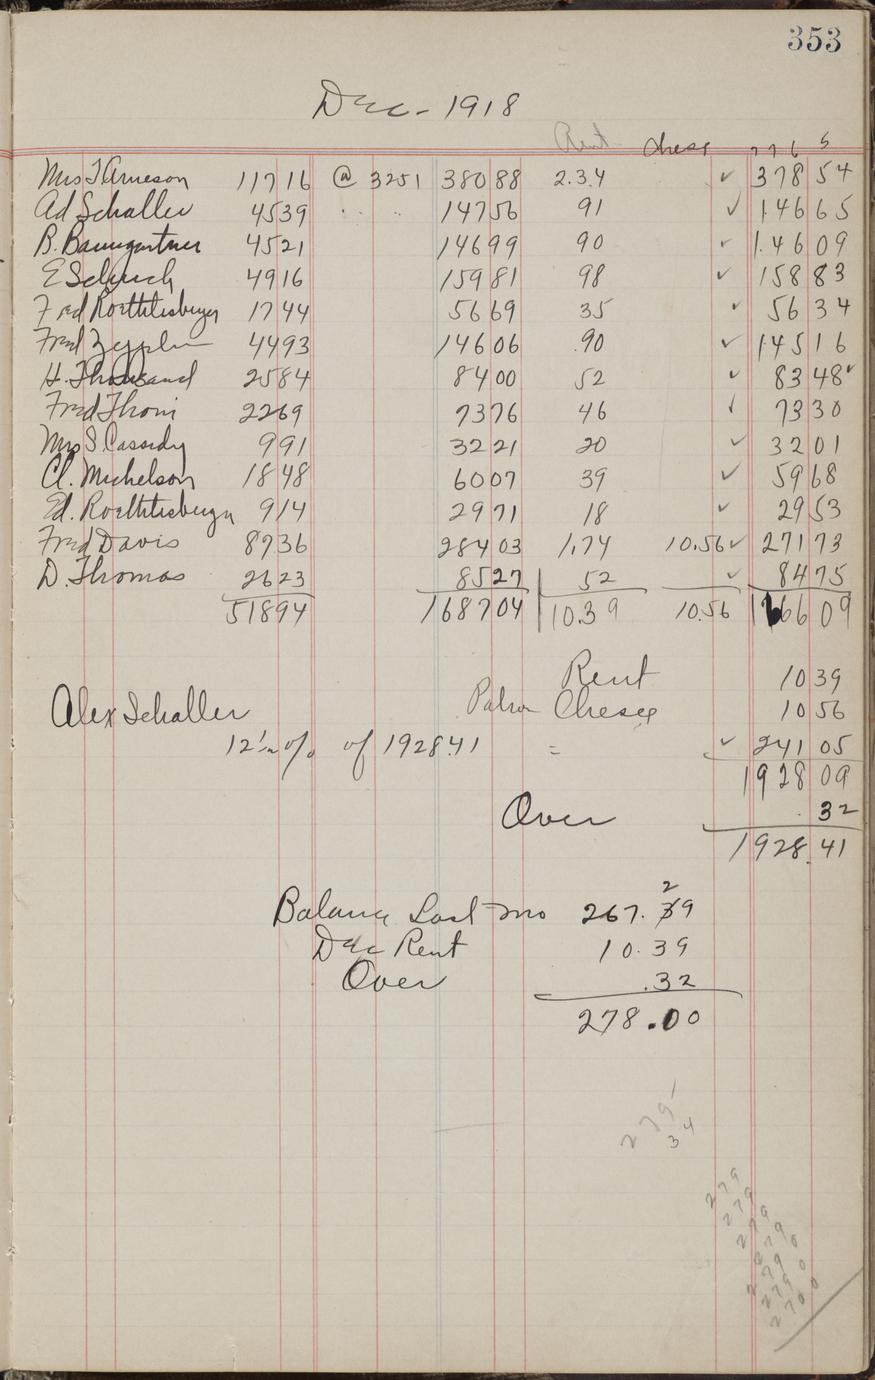 353
Dec - 1918
Rent Chese 7 7 6 5
Mrs T Arneson 11716 @ 3251 380 88 2.34 ✓ 378 54
Ad Schaller 4539 .. .. 147 56 91 ✓ 146 65
B. Baumgartner 4521 146 99 90 ✓ 146 09
E Schuch 4916 159 81 98 ✓ 158 83
Fred Roethlisberger 1744 56 69 35 ✓ 56 34
Fred 4493 146 06 .90 ✓ 145 16
H. Thousand 2584 84 00 52 ✓ 83 48 ✓
Fred Thoni 2269 73 76 46 ✓ 73 30
Mrs S. Cassidy 991 32 21 20 ✓ 32 01
Cl. Michelson 1848 60 07 39 ✓ 59 68
Ed. Roethlisberger 914 29 71 18 ✓ 29 53
Fred Davis 8736 284 03 1.74 10.56 ✓ 271 73
D. Thomas 2623 85 27 52 ✓ 84 75
51894 1687 04 10.39 10.56 1666 09
Rent 10 39
Alex Schaller Patron Chese 10 56
12 1/2 % of 1928.41 = ✓ 241 05
1928 09
Over .32
1928.41
2
Balance Last mo 267.39
Dec Rent 10.39
Over .32
278.00
279-
34
279
279
279
279
279 0
279 0
270 0